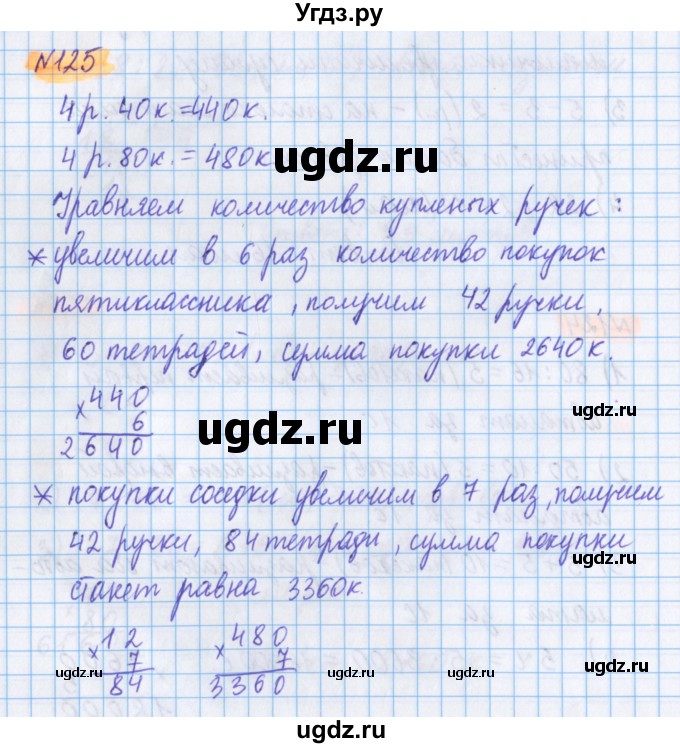 Угдз.ру
№125
4 р. 40 к. = 440 к.
4 р. 80 к. = 480 к
ugdz.ru
Уравняем количество купленых ручек :
* увеличим в 6 раз количество покупок
пятиклассника , получим 42 ручки ,
60 тетрадей, сумма покупки 2640 к.
× 440
6
2640
ugdz.ru
* покупки соседки увеличим в 7 раз, получим
42 ручки, 84 тетради , сумма покупки
станет равна 3360 к.
× 12
7
84
× 480
7
3360
ugdz.ru ugdz.ru ugdz.ru ugdz.ru
ugdz.ru